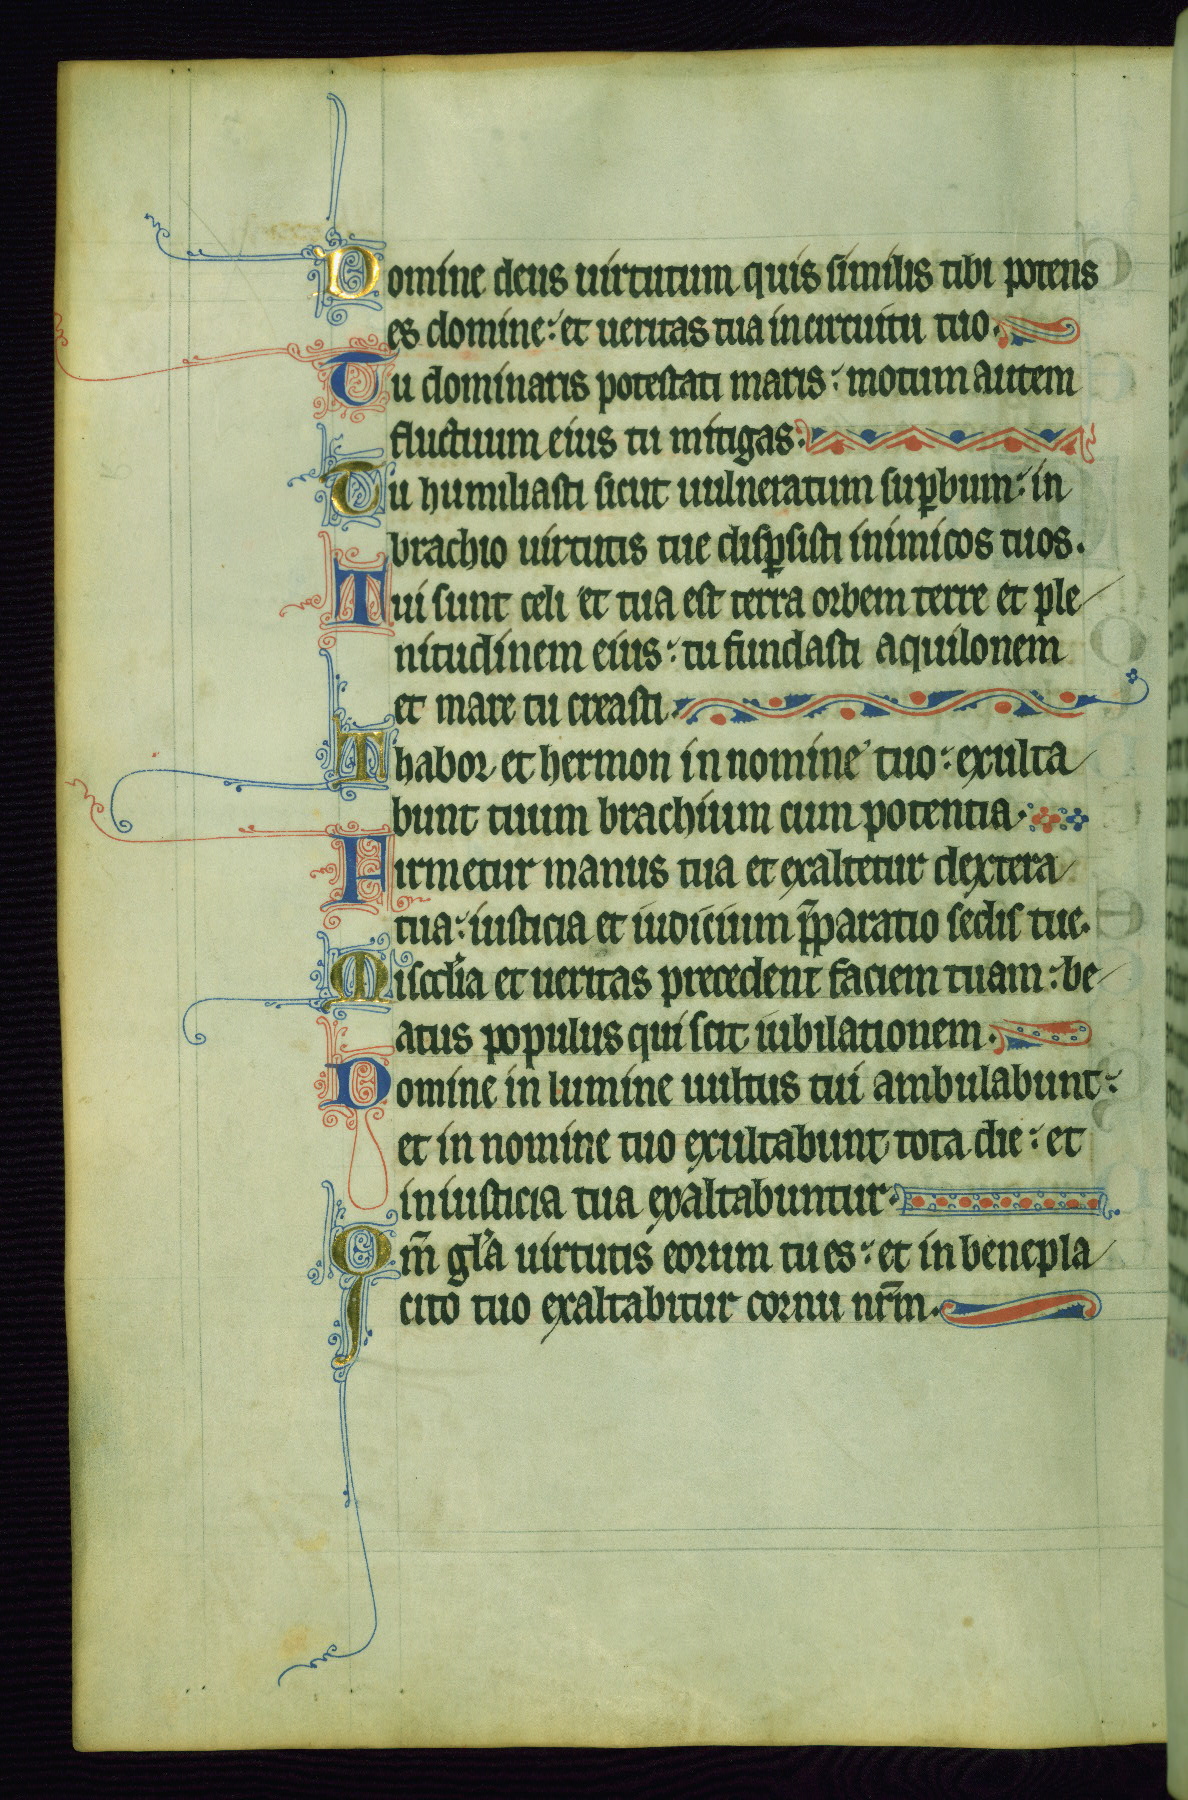 Domine deus uirtutum quis similis tibi potens
es domine: et ueritas tua in circuitu tuo.
Tu dominaris potestati maris: motum autem
fluctuum eius tu mitigas.
Tu humiliasti sicut uulneratum suꝑbum: in
brachio uirtutis tue disꝑsisti inimicos tuos.
Tui sunt celi et tua est terra orbem terre et ple
nitudinem eius: tu fundasti aquilonem
et mare tu creasti.
Thabor et hermon in nomine tuo: exulta
bunt tuum brachium cum potentia.
Firmetur manus tua et exaltetur dextera
tua: iusticia et iudicium p̄paratio sedis tue.
Misc̄dia et ueritas precedent faciem tuam: be
atus populus qui scit iubilationem.
Domine in lumine uultus tui ambulabunt:
et in nomine tuo exultabunt tota die: et
in iusticia tua exaltabuntur.
Qm̄ gl'a uirtutis eorum tu es: et in benepla
cito tuo exaltabitur cornu nr̄m.